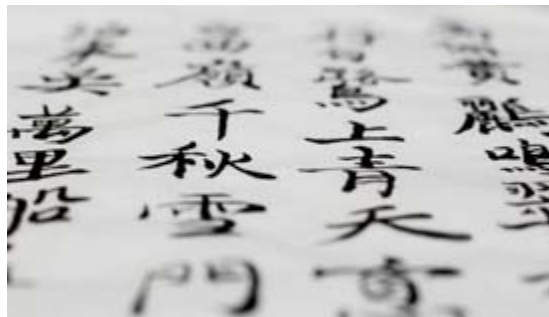 黃鸝鳴翠
鷺上青天
嶺千秋雪門
吳萬里船